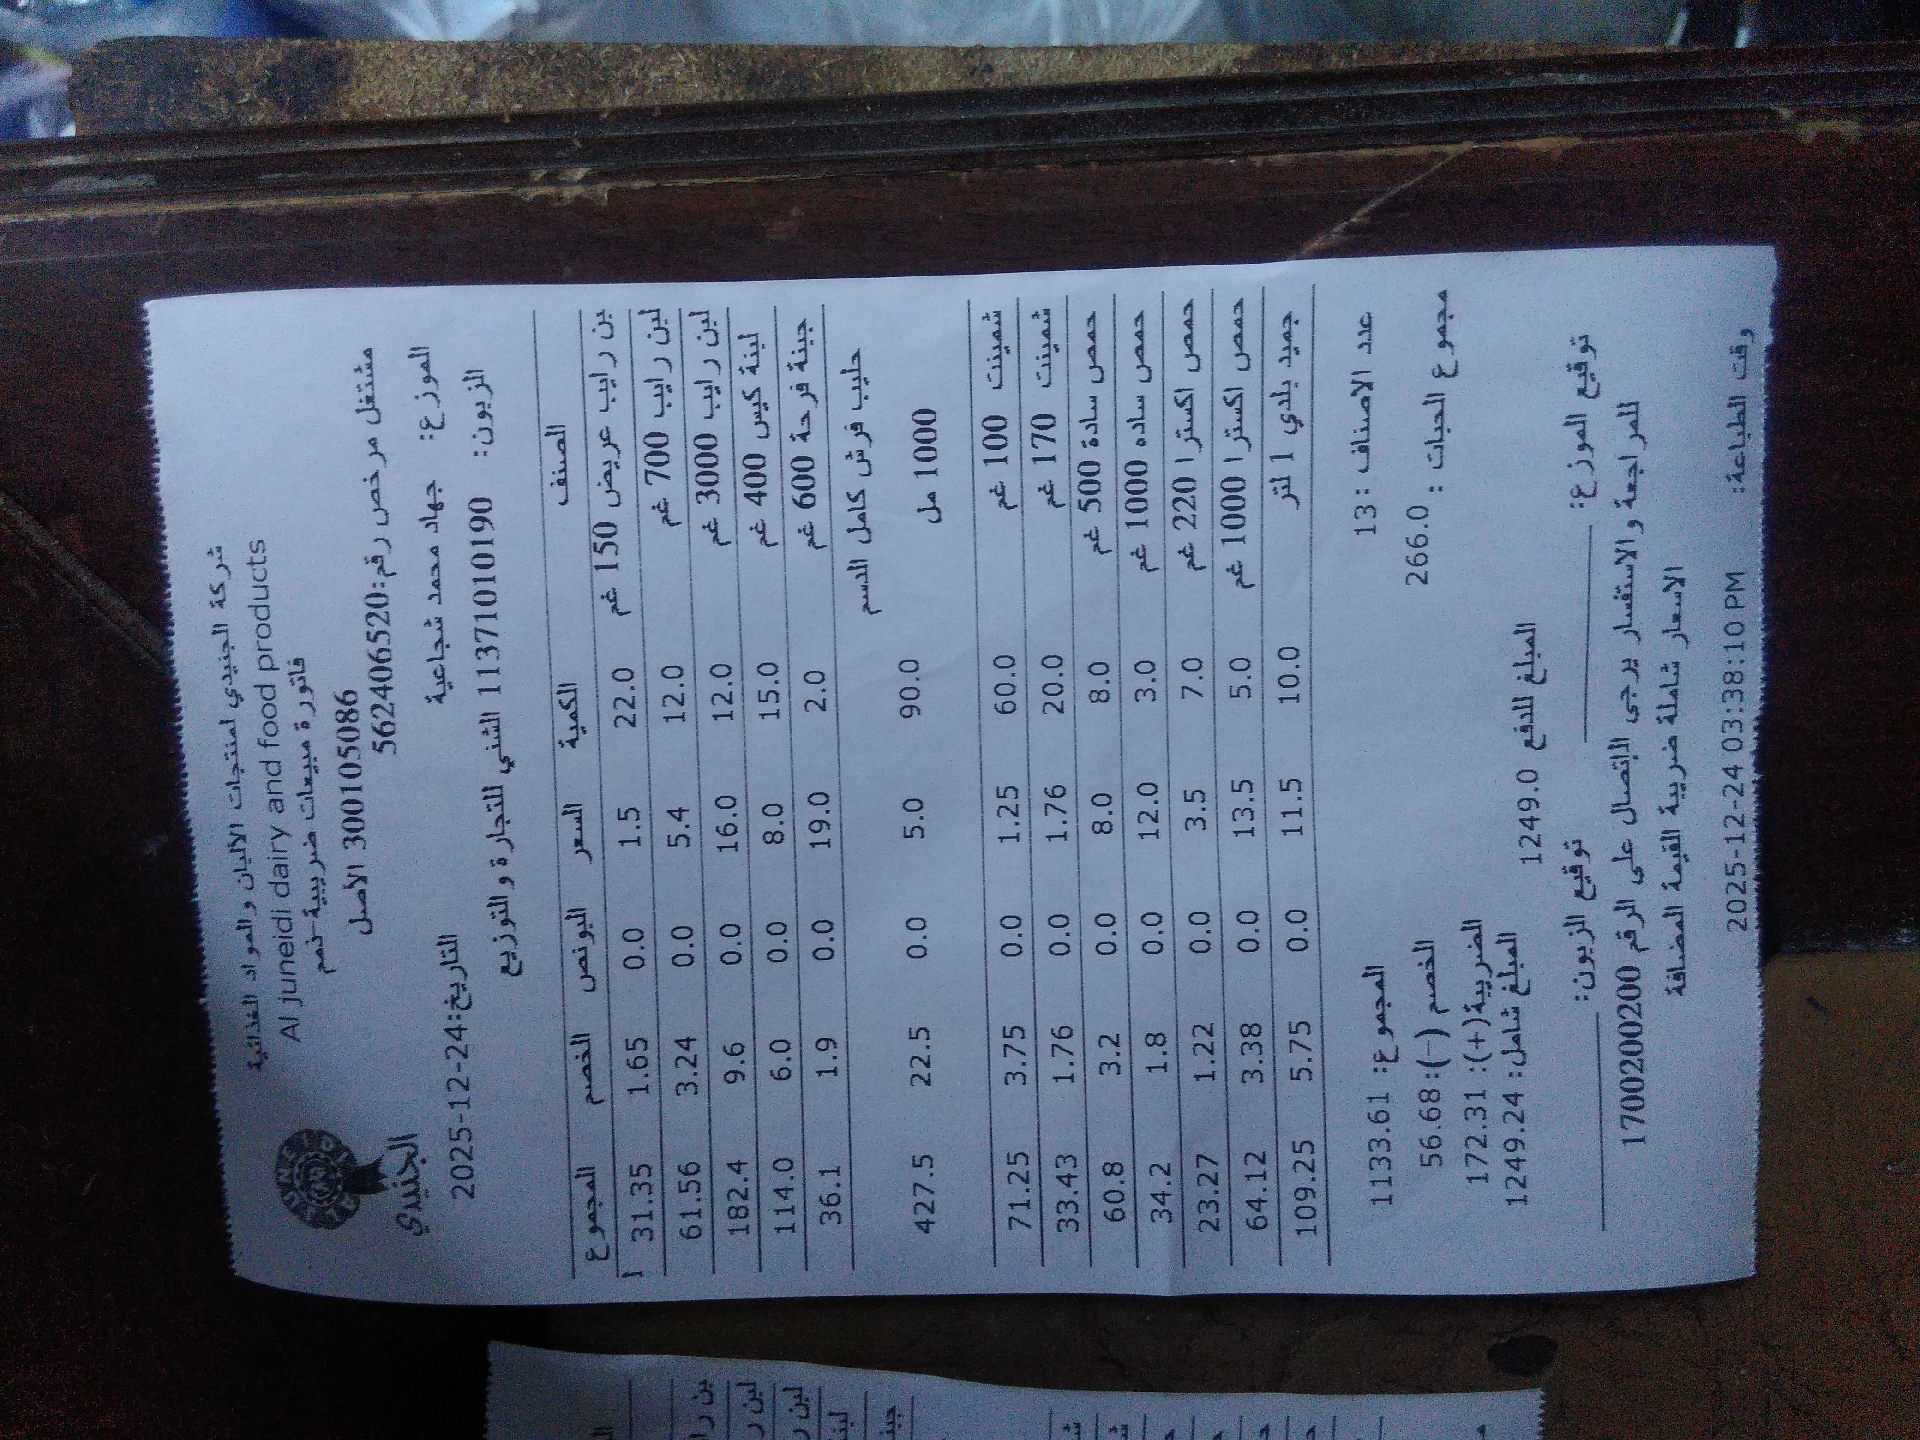 شركة الجنيدي لمنتجات الالبان والمواد الغذائية
Al juneidi dairy and food products
فاتورة مبيعات ضريبية-ذمم
3001105086 الأصل
مشتغل مرخص رقم:562406520
الجنيدي
الموزع: جهاد محمد شجاعية
التاريخ:2025-12-24
الزبون: 11371010190 الشني للتجارة والتوزيع
الصنف الكمية السعر البونص الخصم المجموع
بن رايب عريض 150 غم 22.0 1.5 0.0 1.65 31.35
لبن رايب 700 غم 12.0 5.4 0.0 3.24 61.56
لبن رايب 3000 غم 12.0 16.0 0.0 9.6 182.4
لبنة كيس 400 غم 15.0 8.0 0.0 6.0 114.0
جبنة فرحة 600 غم 2.0 19.0 0.0 1.9 36.1
حليب فرش كامل الدسم
1000 مل 90.0 5.0 0.0 22.5 427.5
شمينت 100 غم 60.0 1.25 0.0 3.75 71.25
شمينت 170 غم 20.0 1.76 0.0 1.76 33.43
حمص سادة 500 غم 8.0 8.0 0.0 3.2 60.8
حمص ساده 1000 غم 3.0 12.0 0.0 1.8 34.2
حمص اكسترا 220 غم 7.0 3.5 0.0 1.22 23.27
حمص اكسترا 1000 غم 5.0 13.5 0.0 3.38 64.12
جميد بلدي 1 لتر 10.0 11.5 0.0 5.75 109.25
عدد الاصناف : 13 المجموع: 1133.61
مجموع الحبات : 266.0 الخصم (-): 56.68
الضريبة(+): 172.31
المبلغ شامل: 1249.24
المبلغ للدفع 1249.0
توقيع الموزع: توقيع الزبون:
للمراجعة والاستفسار يرجى الإتصال على الرقم 1700200200
الاسعار شاملة ضريبة القيمة المضافة
وقت الطباعة: 2025-12-24 03:38:10 PM